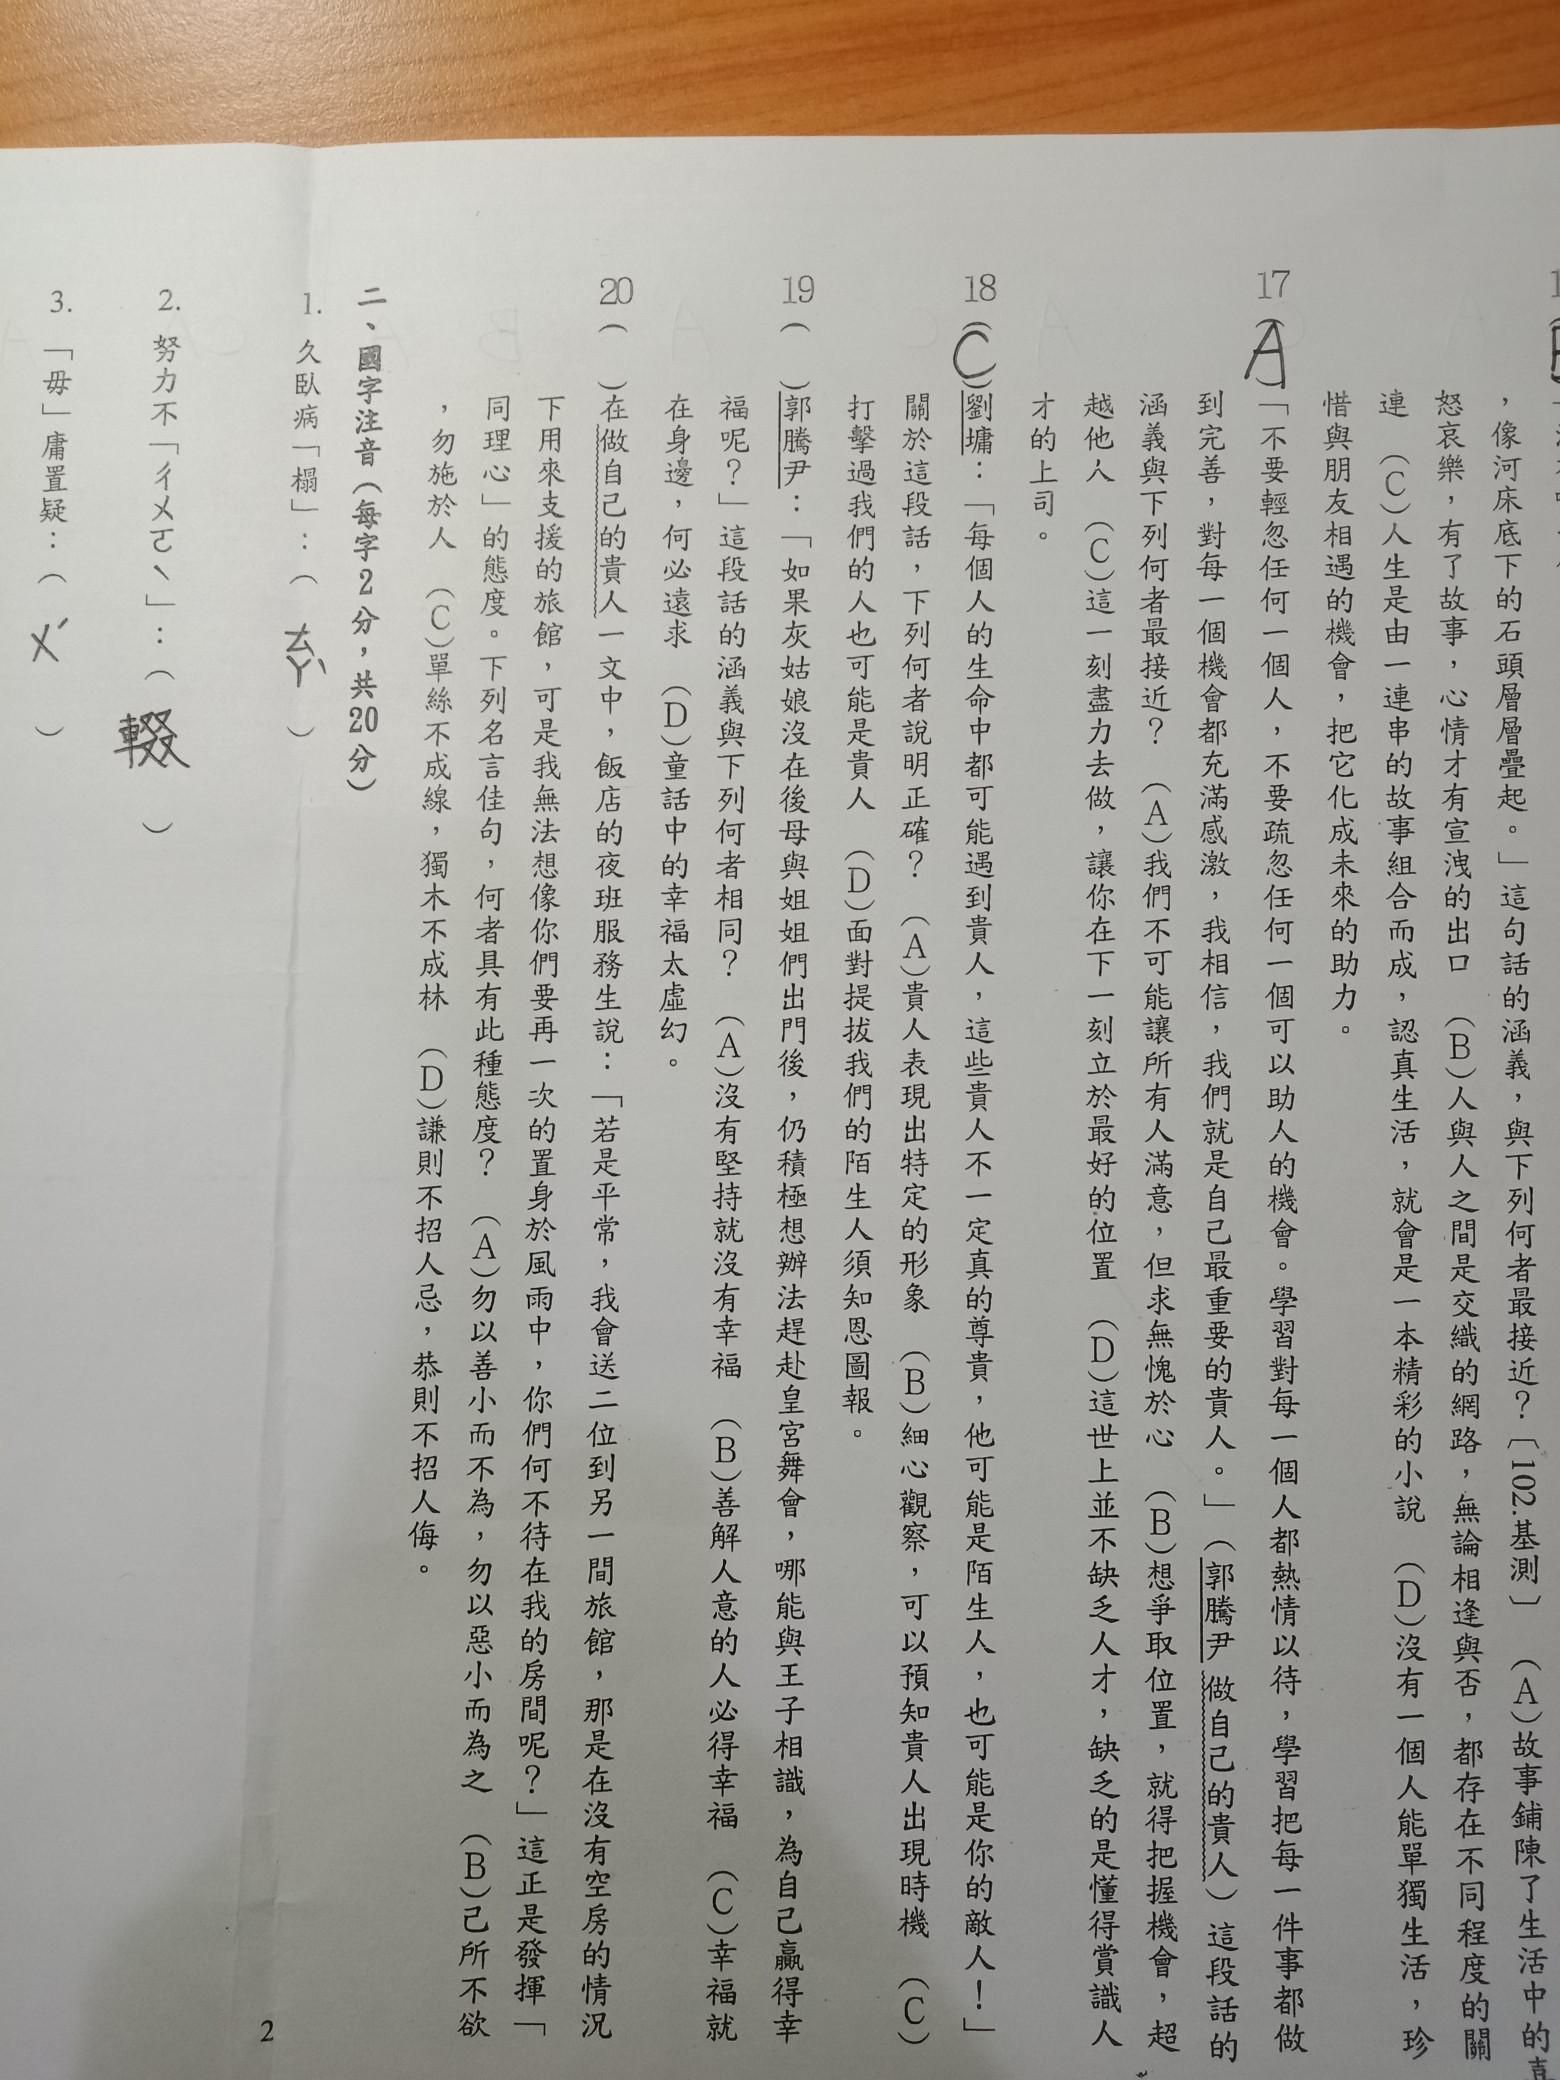 ，像河床底下的石頭層層疊起。」這句話的涵義，與下列何者最接近？〔102.基測〕 （A）故事鋪陳了生活中的喜
怒哀樂，有了故事，心情才有宣洩的出口 （B）人與人之間是交織的網路，無論相逢與否，都存在不同程度的關
連 （C）人生是由一連串的故事組合而成，認真生活，就會是一本精彩的小說 （D）沒有一個人能單獨生活，珍
惜與朋友相遇的機會，把它化成未來的助力。
17（A）「不要輕忽任何一個人，不要疏忽任何一個可以助人的機會。學習對每一個人都熱情以待，學習把每一件事都做
到完善，對每一個機會都充滿感激，我相信，我們就是自己最重要的貴人。」（郭騰尹 做自己的貴人）這段話的
涵義與下列何者最接近？ （A）我們不可能讓所有人滿意，但求無愧於心 （B）想爭取位置，就得把握機會，超
越他人 （C）這一刻盡力去做，讓你在下一刻立於最好的位置 （D）這世上並不缺乏人才，缺乏的是懂得賞識人
才的上司。
18（C）劉墉：「每個人的生命中都可能遇到貴人，這些貴人不一定真的尊貴，他可能是陌生人，也可能是你的敵人！」
關於這段話，下列何者說明正確？ （A）貴人表現出特定的形象 （B）細心觀察，可以預知貴人出現時機 （C）
打擊過我們的人也可能是貴人 （D）面對提拔我們的陌生人須知恩圖報。
19（ ）郭騰尹：「如果灰姑娘沒在後母與姐姐們出門後，仍積極想辦法趕赴皇宮舞會，哪能與王子相識，為自己贏得幸
福呢？」這段話的涵義與下列何者相同？ （A）沒有堅持就沒有幸福 （B）善解人意的人必得幸福 （C）幸福就
在身邊，何必遠求 （D）童話中的幸福太虛幻。
20（ ）在做自己的貴人一文中，飯店的夜班服務生說：「若是平常，我會送二位到另一間旅館，那是在沒有空房的情況
下用來支援的旅館，可是我無法想像你們要再一次的置身於風雨中，你們何不待在我的房間呢？」這正是發揮「
同理心」的態度。下列名言佳句，何者具有此種態度？ （A）勿以善小而不為，勿以惡小而為之 （B）己所不欲
，勿施於人 （C）單絲不成線，獨木不成林 （D）謙則不招人忌，恭則不招人侮。
二、國字注音（每字2分，共20分）
1. 久臥病「榻」：（ㄊㄚˋ）
2. 努力不「ㄔㄨㄛˋ」：（輟）
3. 「毋」庸置疑：（ㄨˊ）
2